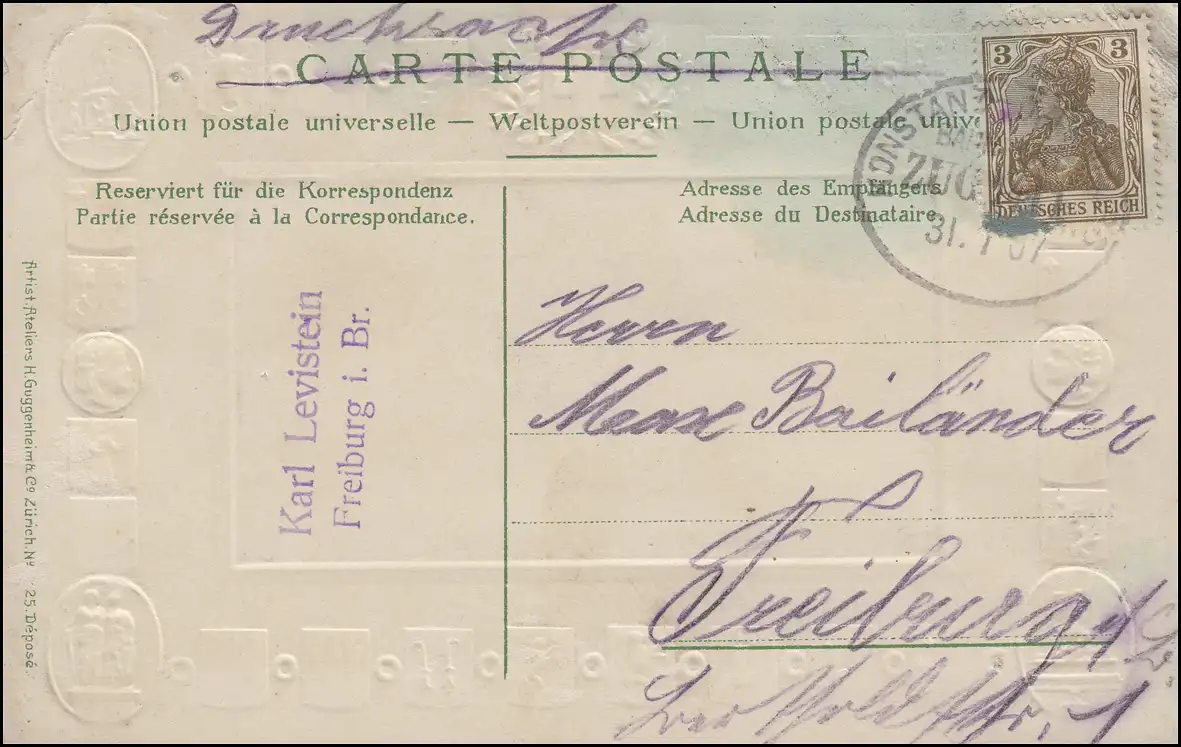 Drucksache
CARTE POSTALE
Union postale universelle — Weltpostverein — Union postale unive
Reserviert für die Korrespondenz
Partie réservée à la Correspondance.
Adresse des Empfängers
Adresse du Destinataire
3 3
DEUTSCHES REICH
KONSTAN
ZUG
31. 1 07
Karl Levistein
Freiburg i. Br.
Artist. Ateliers H. Guggenheim & Co Zürich. No 25. Déposé.
Herrn
Max Bailänder
Freiburg